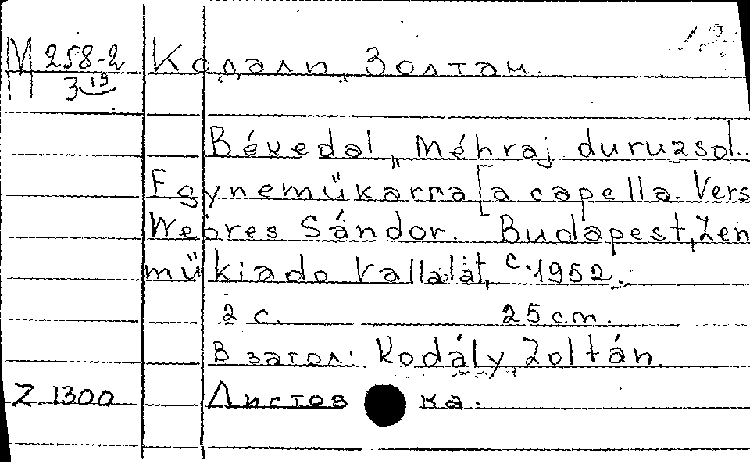 М 258-2 Кодали, Золтан.
3 19
Békedal, Méhraj duruzsol.
Egyneműkarra [a capella. Vers
Weöres Sándor. Budapest, Zen
műkiado vallalat, c. 1952.
2 c. 25 cm.
В загол: Kodály Zoltán.
Z 1300 Листовка.